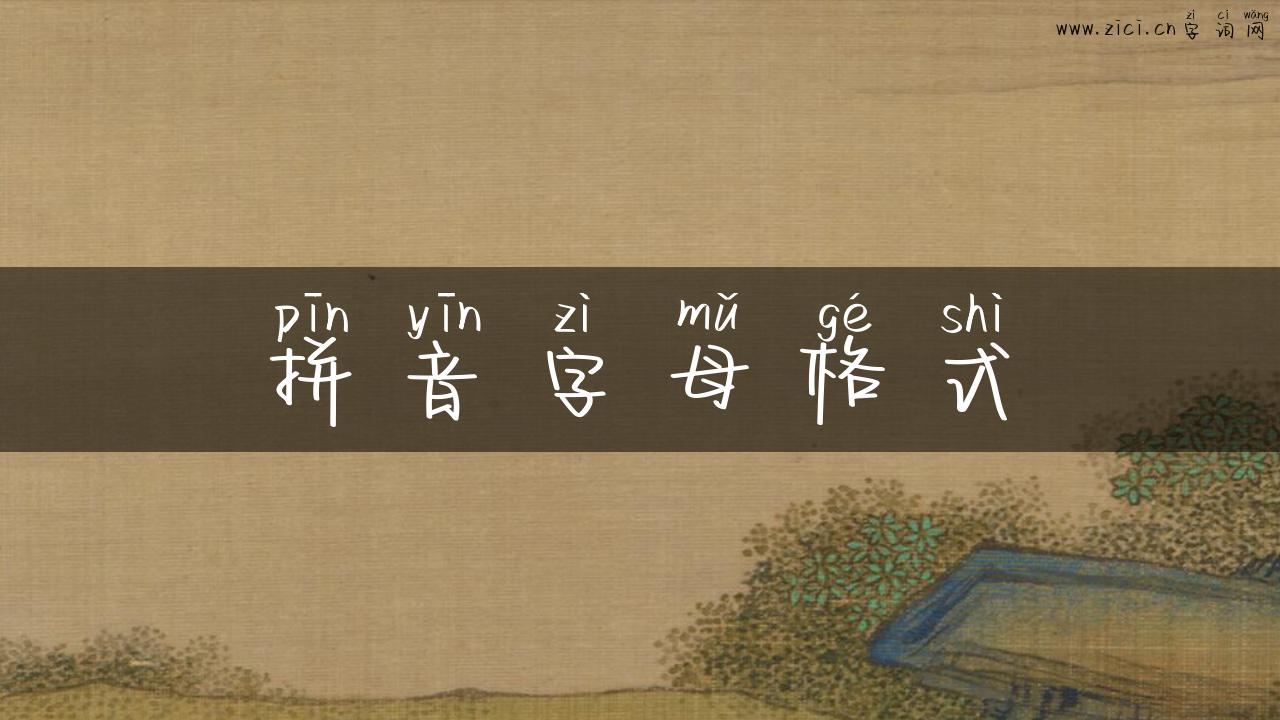 zì cí wǎng
www.zici.cn 字 词 网
pīn yīn zì mǔ gé shì
拼 音 字 母 格 式